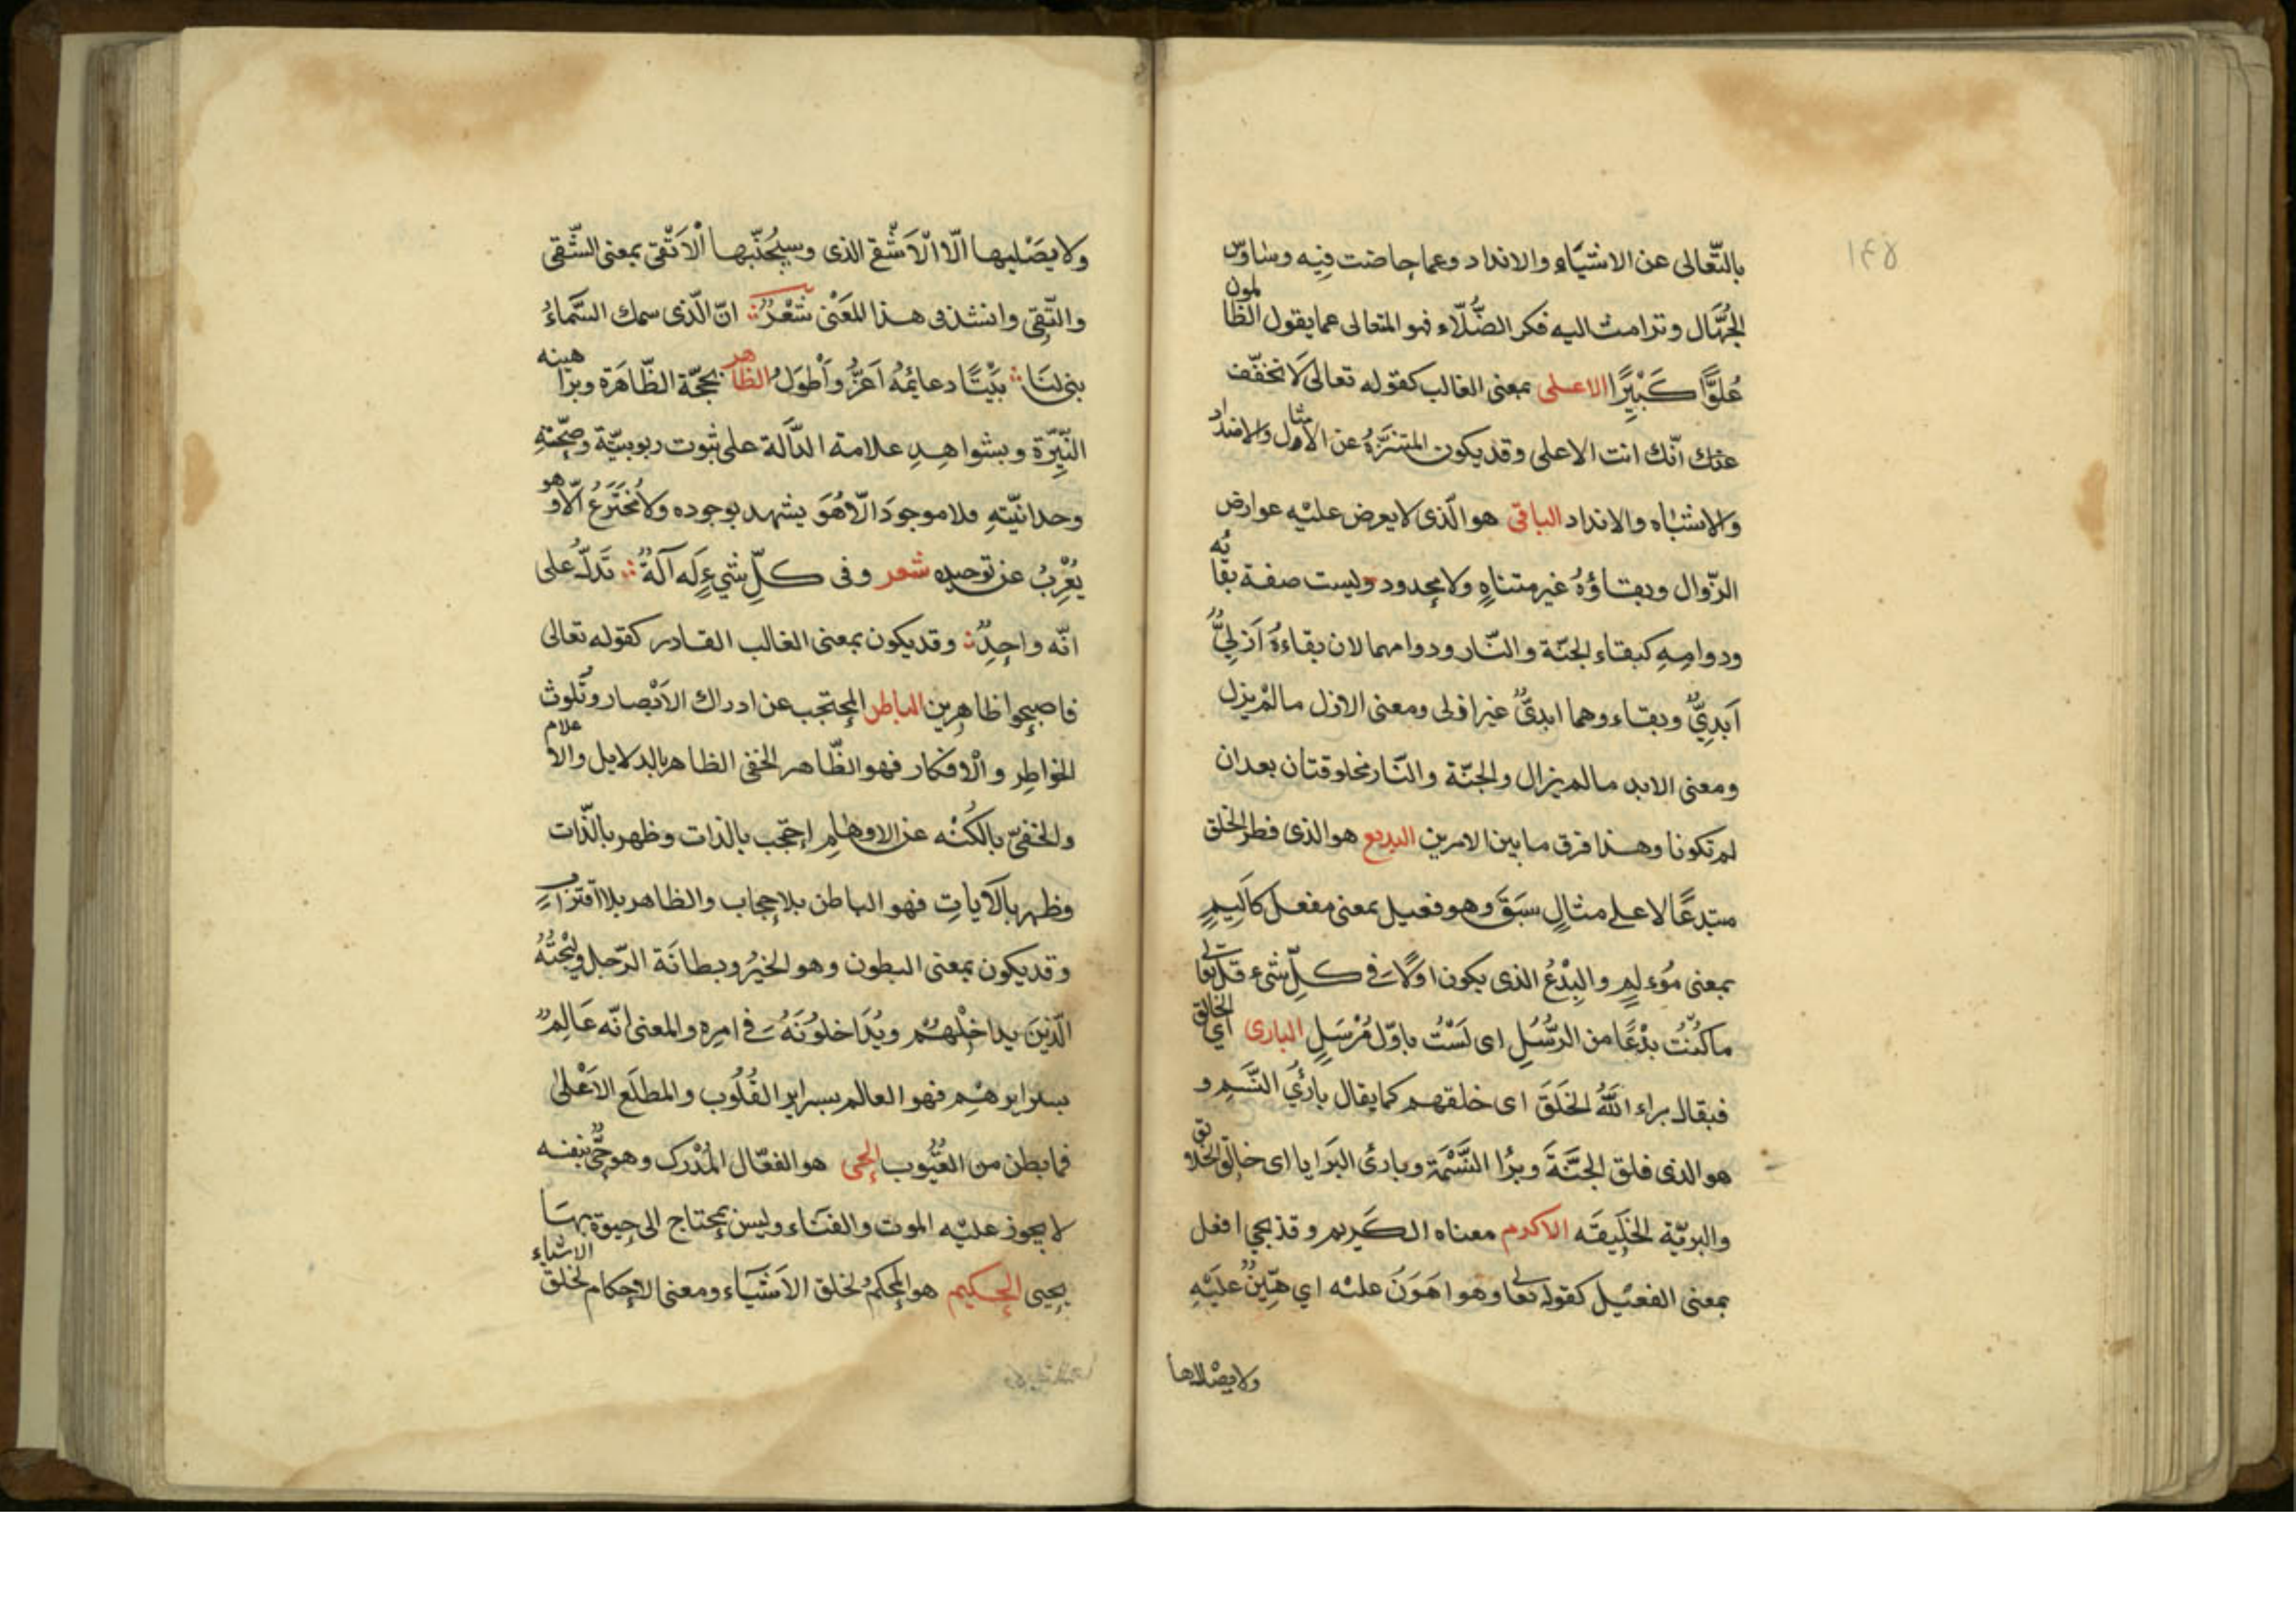 ۱۴۵
بالتّعالى عن الاشيَاء والانداد وعما جاضت فيِه وساوس
الجُهَّال وترامت اليه فكر الضُّلّاء فهو المتعالى عما يقول الظالمون
عُلوًّا كَبيِرًا الاعلى بمعنى الغالب كقوله تعالىٰ لَا تخفّف
عنك انّك انت الاعلى وقد يكون المتنزَّهُ عن الأمثال والاضداد
والاشباه والانداد الباقى هو الّذى لا يعرض عليْه عوارض
الزّوال وبقاؤهُ غير متناهٍ ولا محدود وليست صفة بقائه
ودوامِهِ كبقاء الجنّة والنّار ودوامهما لان بقاءهُ اَزليٌّ
اَبدِيٌّ وبقاء وهما ابدىٌّ غير ازلى ومعنى الازل مالم يزل
ومعنى الابد مالم يزال والجنّة والنّار مخلوقتان بعد ان
لم تكونا وهذا فرق ما بين الامرين البديع هو الذى فطر الخلق
مبتدعًا لا على مثالٍ سبَقَ وهو فعيل بمعنى مفعل كاَليِمٍ
بمعنى مُوءلمٍ والبِدْعُ الذى يكون اوّلاً فى كلّ شىء قل تعالى
ما كُنْتُ بدْعًا من الرُّسُلِ اى لَسْتُ باوّل مُرْسَلٍ البارى اي الخالق
فيقال براء اللّٰهُ الخَلَقَ اى خلقهم كما يقال بارئَ النَّسَم و
هو الذى فلق الجَنَّةَ وبرُا النَّسْمَة وبارئ البَرَايا اى خالق الخلائق
والبريّة الخَلِيقَه الاكرم معناه الكَريم وقد يجى افعل
بمعنى الفعيْل كقوله تعالى وهو اهَوَنُ عليْه اي هيّنٌ عليَهِْ
ولا يصْلاها
ولا يصَْليها الّا الْاَشْقى الذى وسيُجَنّبها اْلاَتْقى بمعنى الشّقى
والتّقِى وانشد فى هذا المَعْنى شَعْرٌ انّ الّذى سمك السَّماءُ
بنى لنَا بَيْتًا دعايمُهُ اَعَزُّ واَْطوَلُ الظاهر بحجّة الظّاهَرَة وبراهينه
النّيِّرَة وبشواهِدِ علامته الدَّالة على ثبوت ربوبيّة وصِحّتهِ
وحدانيّتهِ فلا موجودَ الّا هُوَ يشهد بوجوده ولا مُختَرَعُ الّا وهو
يُعْرِبُ عن توحيده شعر وفى كلّ شيءٍ لَه آلَهٌ تَدلّ على
انّه واحِدٌ وقد يكون بمعنى الغالب القادر كقوله تعالى
فاصبحوا ظاهِرين الباطن المحتجب عن ادراك الاَبْصار وتَلوث
الخواطِر والْافكار فهو الظّاهر الخفى الظاهر بالدلايل والاعلام
والخفىّ بالكُنْه عن الاوهامِ احتجب بالذات وظهر بالذّات
وظهر بالآياتِ فهو الباطن بلا حجاب والظاهر بلا اقترابٍ
وقد يكون بمعنى البطون وهو الخبرُ وبطانَة الرّجل وليْجتُهُ
الّذيَن يداخِلْهُم ويُدَاخلونَهُ فى امرِه والمعنى انّه عَالمٌِ
بسرايرهْم فهو العالم بسراير القُلُوب والمطلَع الاَعْلىٰ
فما بطن من الغُيُوب الحى هو الفعّال المُدْرك وهو حىٌّ بنفسه
لا يجوز عليْه الموت والفنَاء وليس بمحتاج الى حيوة بهَا
يحيى الحكيم هو المحكمُ لخلق الاَشيَاء ومعنى الاحكام لخلق الاشياء